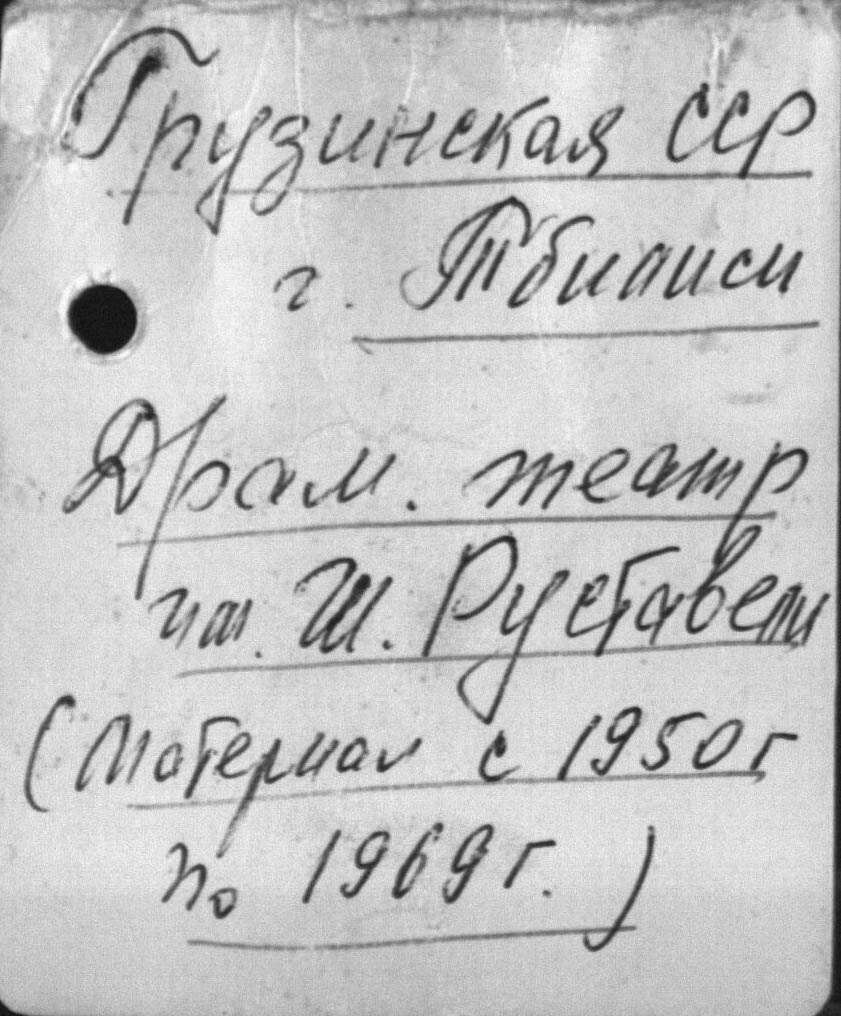 Грузинская ССР
г. Тбилиси
Драм. театр
им. Ш. Руставели
(Материал с 1950г
по 1969г.)